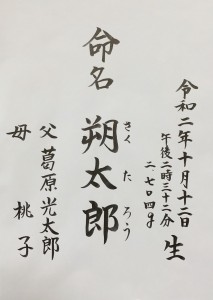 令和二年十月十二日
午後二時三十二分
二、七〇四g
生
命名
朔太郎
さく た ろう
父 葛原光太郎
母 桃子